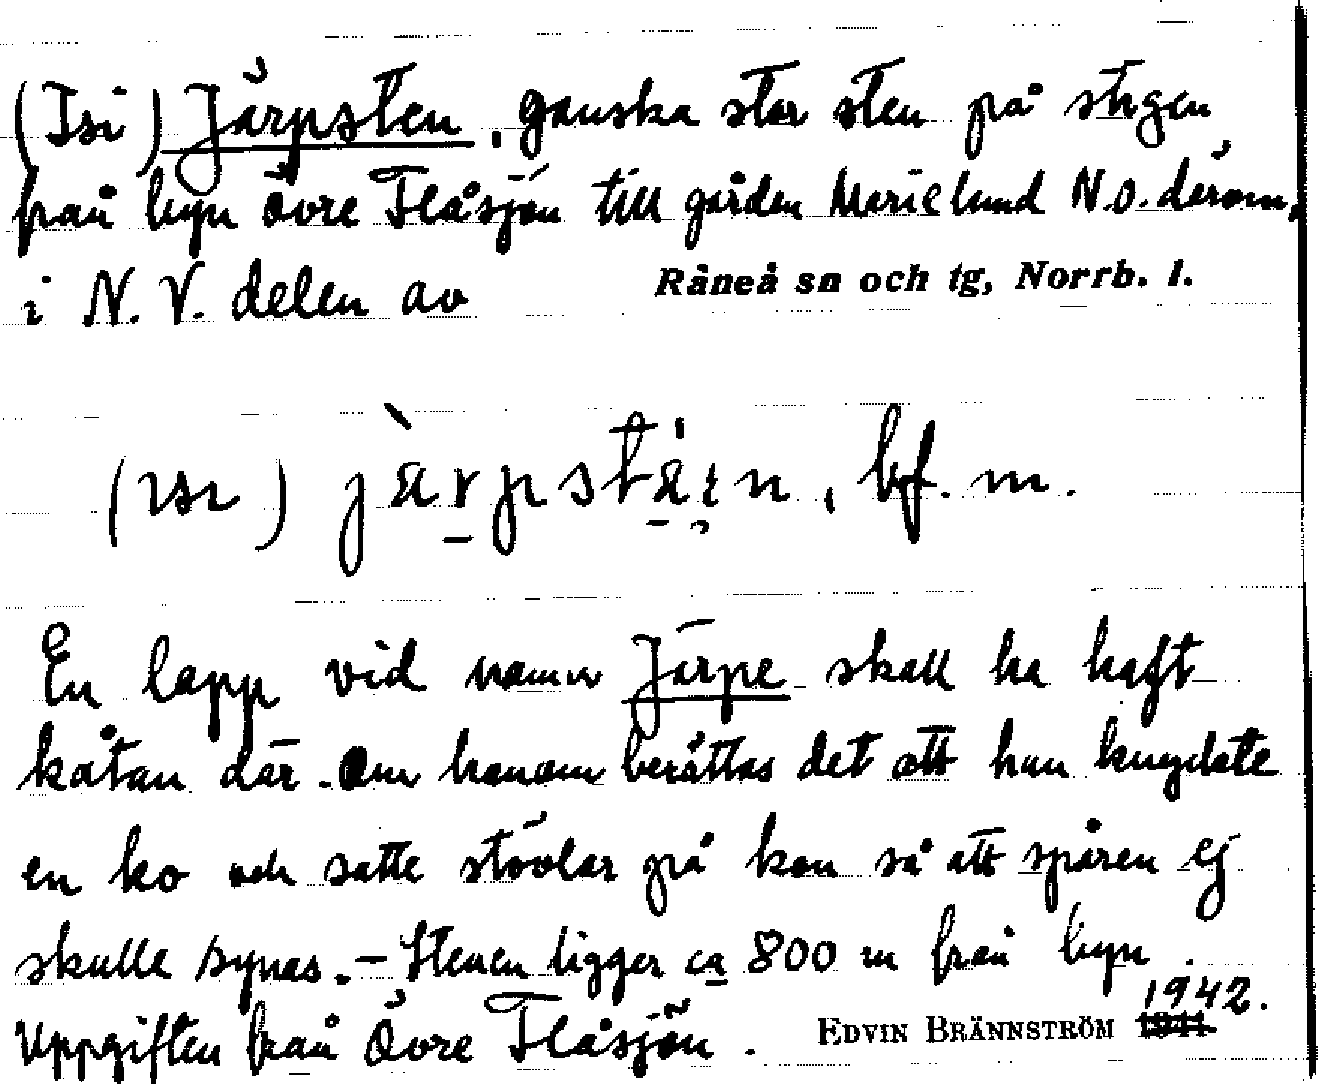 (Isi) Järpsten, ganska stor sten på stigen
från byn Övre Flåsjön till gården Marielund N.O. därom,
i N.V. delen av Råneå sn och tg, Norrb. l.
(ısı) jàrpstäın, bf. m.
En lapp vid namn Järpe skall ha haft
kåtan där. Om honom berättas det att han knyckte
en ko och satte stövlar på kon så att spåren ej
skulle synas. – Stenen ligger ca 800 m från byn.
Uppgiften från Övre Flåsjön. EDVIN BRÄNNSTRÖM 1942.